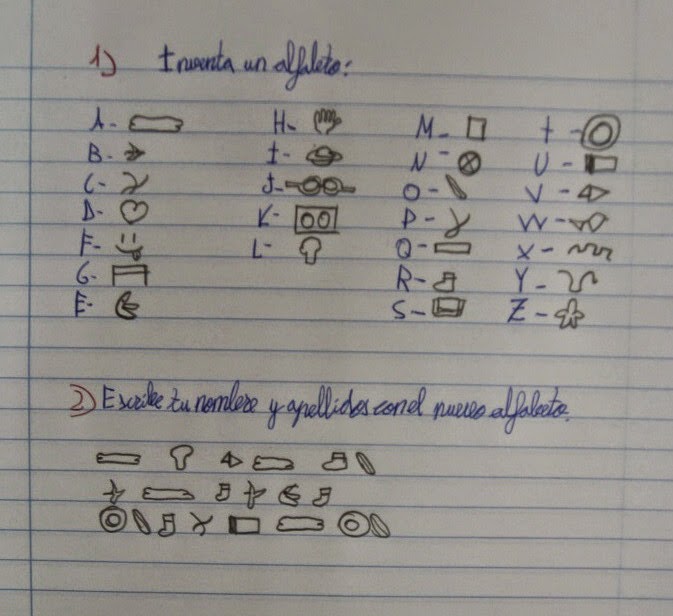 1) Inventa un alfabeto:
A-
B-
C-
D-
F-
G-
E-
H-
I-
J-
K-
L-
M-
N-
O-
P-
Q-
R-
S-
t-
U-
V-
W-
X-
Y-
Z-
2) Escribe tu nombre y apellidos con el nuevo alfabeto.